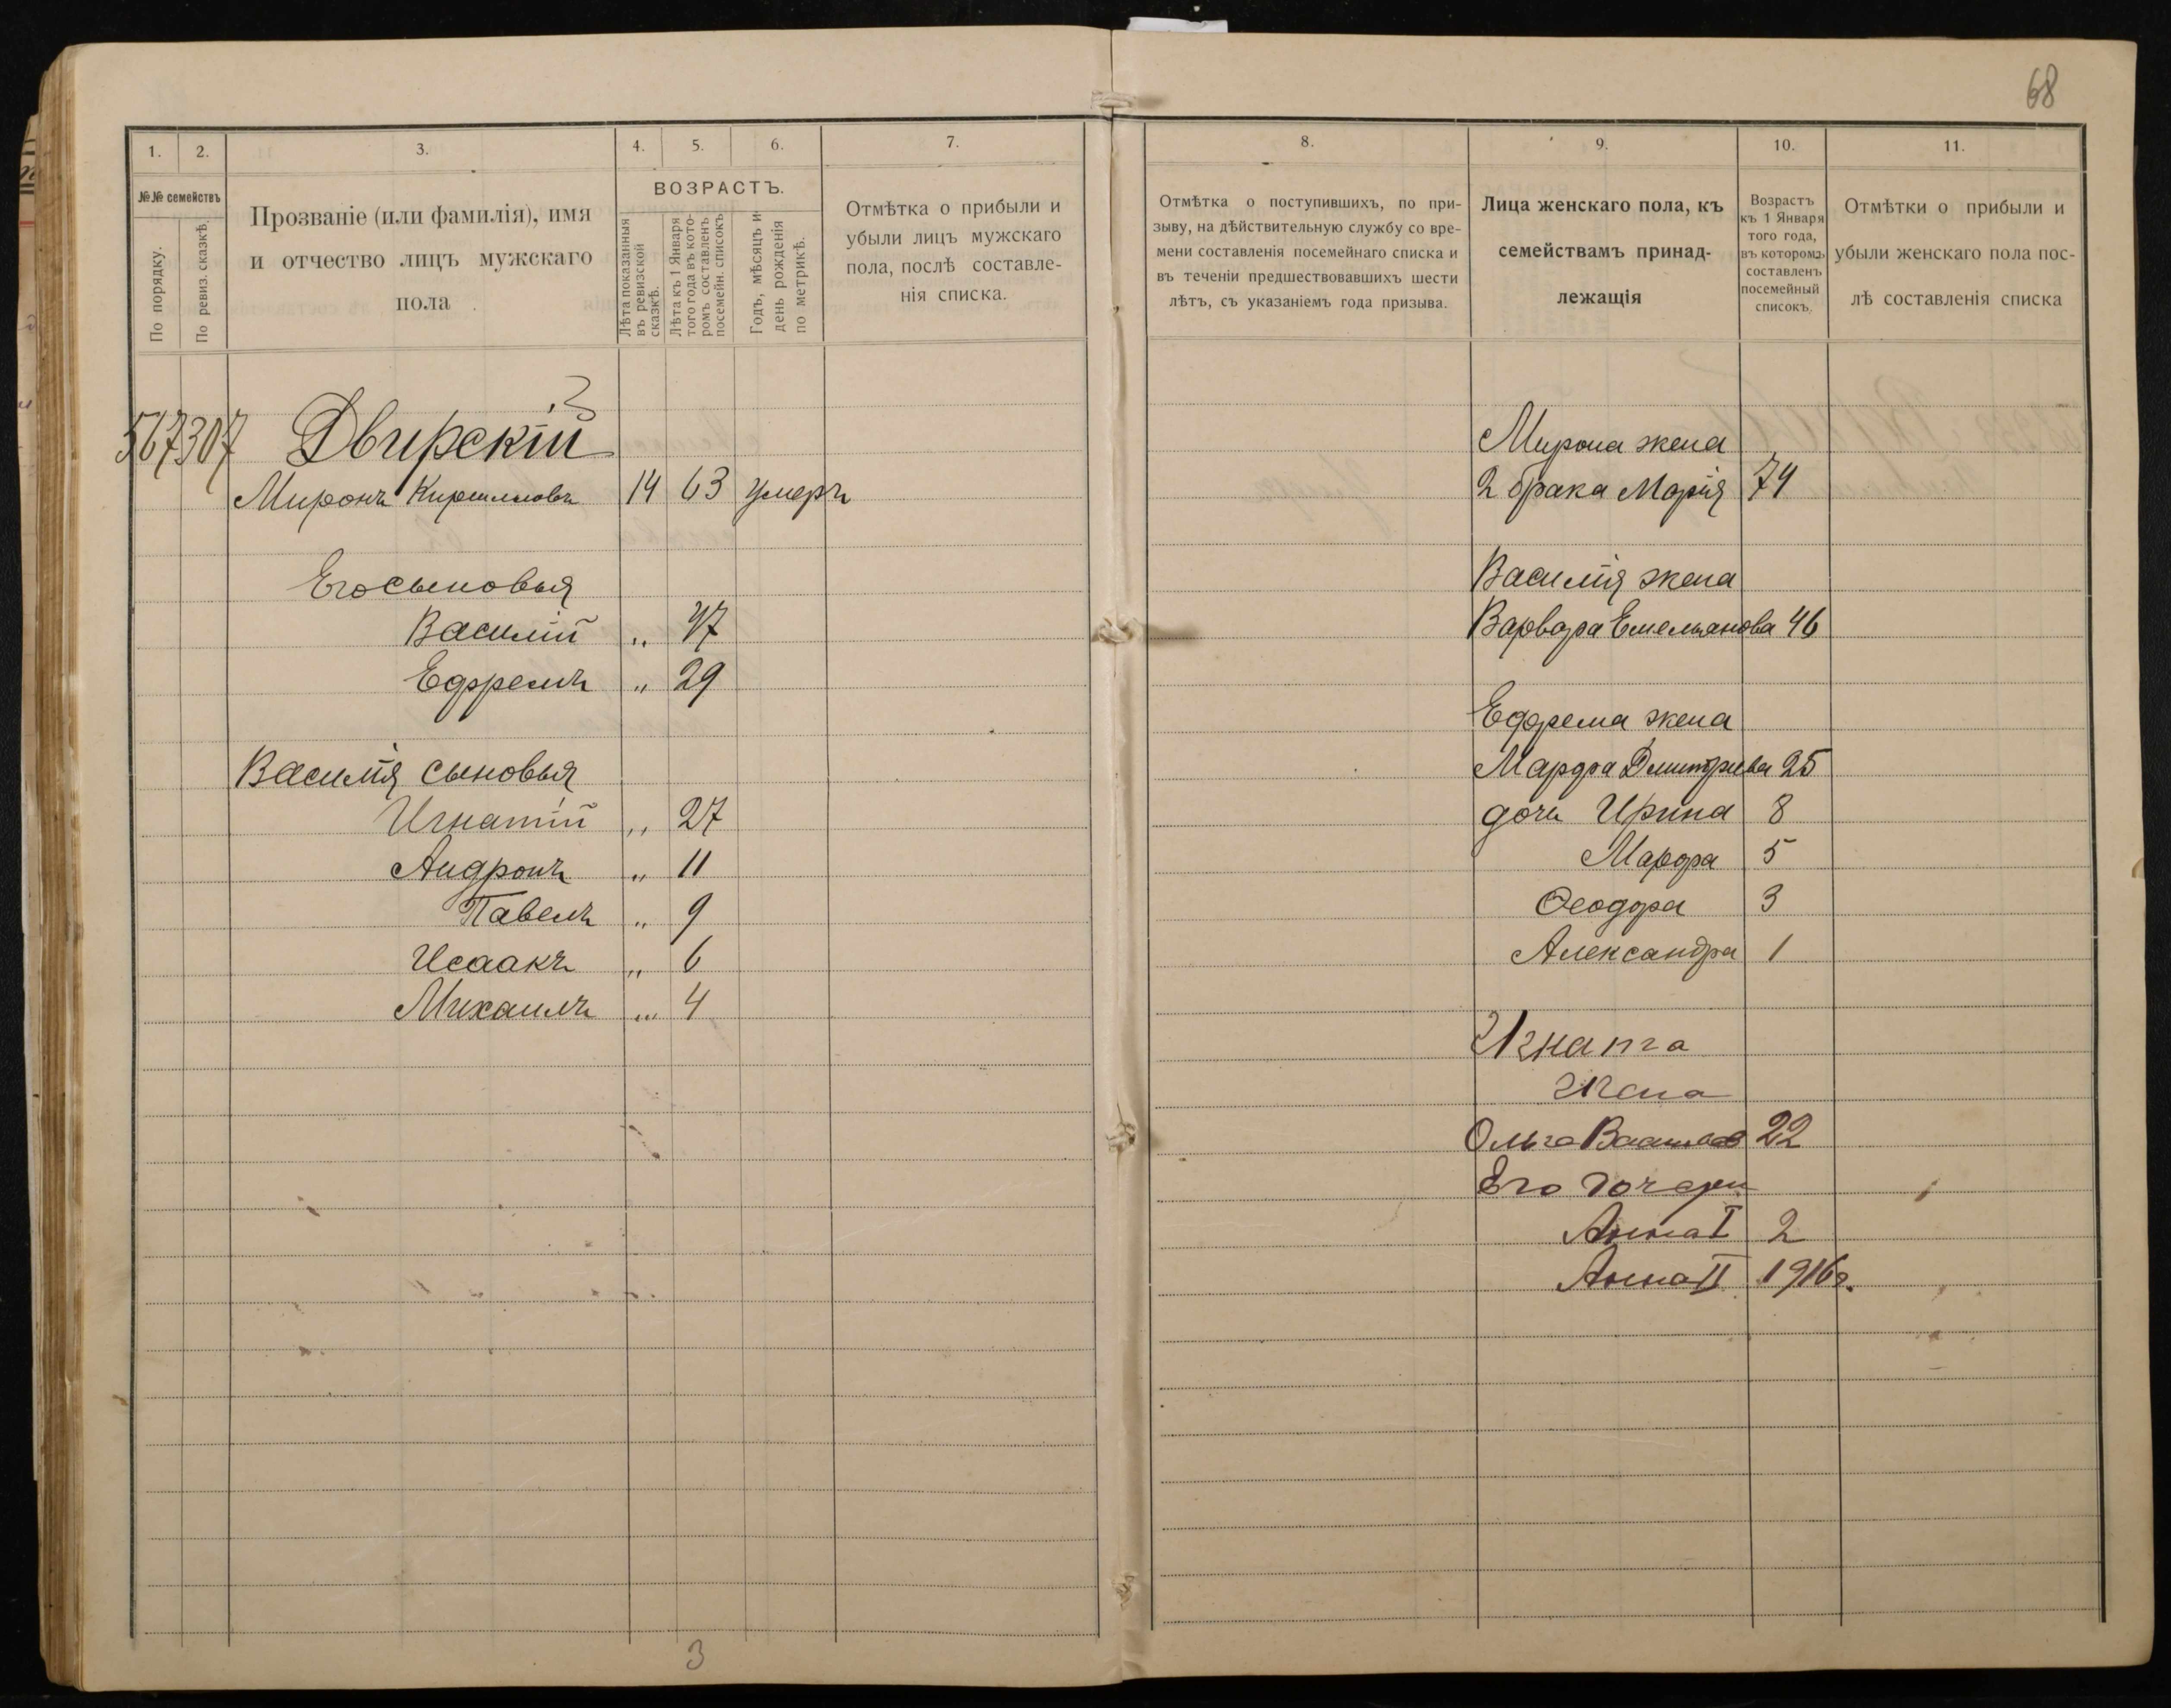 68
1. 2. 3. 4. 5. 6. 7.
№№ семействъ
По порядку.
По ревиз. сказкѣ.
Прозваніе (или фамилія), имя
и отчество лицъ мужскаго
пола
ВОЗРАСТЪ.
Лѣта показанныя
въ ревизской
сказкѣ.
Лѣта къ 1 Января
того года въ кото-
ромъ составленъ
посемейн. списокъ
Годъ, мѣсяцъ и
день рожденія
по метрикѣ.
Отмѣтка о прибыли и
убыли лицъ мужскаго
пола, послѣ составле-
нія списка.
567 307 Двирскій
Миронъ Кирилловъ 14 63 умеръ
Его сыновья
Василій „ 47
Ефремъ „ 29
Василія сыновья
Игнатій „ 27
Андронъ „ 11
Павелъ „ 9
Исаакъ „ 6
Михаилъ „ 4
3
8. 9. 10. 11.
Отмѣтка о поступившихъ, по при-
зыву, на дѣйствительную службу со вре-
мени составленія посемейнаго списка и
въ теченіи предшествовавшихъ шести
лѣтъ, съ указаніемъ года призыва.
Лица женскаго пола, къ
семействамъ принад-
лежащія
Возрастъ
къ 1 Января
того года,
въ которомъ
составленъ
посемейный
списокъ.
Отмѣтки о прибыли и
убыли женскаго пола пос-
лѣ составленія списка
Мирона жена
2 брака Марія 74
Василія жена
Варвара Емельянова 46
Ефрема жена
Марфа Дмитриева 25
дочь Ирина 8
Марфа 5
Ѳеодора 3
Александра 1
Игната
жена
Ольга 22
Его дочери
Анна I 2
Анна II 1916г.